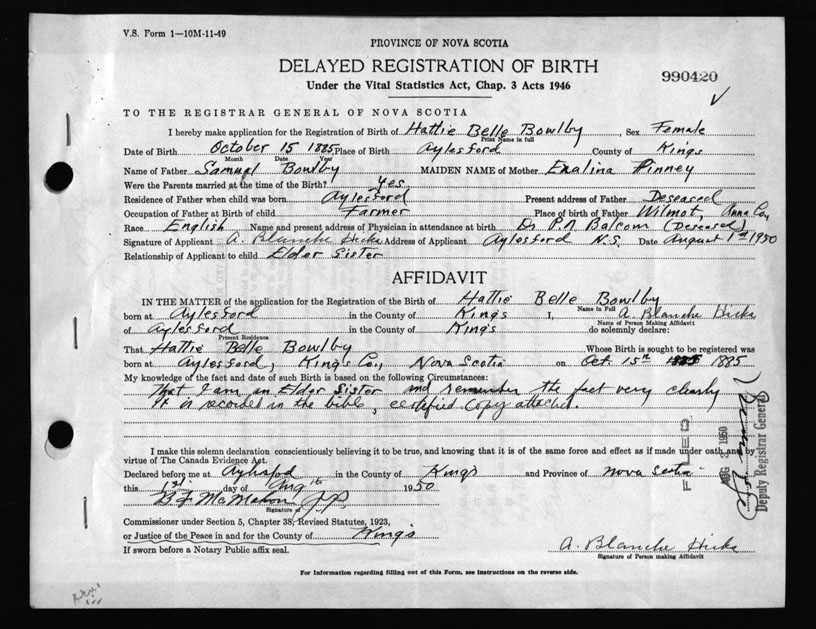 V.S. Form 1—10M-11-49
PROVINCE OF NOVA SCOTIA
DELAYED REGISTRATION OF BIRTH
990420
Under the Vital Statistics Act, Chap. 3 Acts 1946
TO THE REGISTRAR GENERAL OF NOVA SCOTIA
I hereby make application for the Registration of Birth of Hattie Belle Bowlby, Sex Female
Print Name in full
Date of Birth October 15 1885, Place of Birth Aylesford County of Kings
Month Date Year
Name of Father Samuel Bowlby MAIDEN NAME of Mother Evalina Pinney
Were the Parents married at the time of the Birth? yes
Residence of Father when child was born Aylesford Present address of Father Deseased
Occupation of Father at Birth of child Farmer Place of birth of Father Wilmot, Anna Co,
Race English Name and present address of Physician in attendance at birth Dr P.N. Balcom (Deseased)
Signature of Applicant A. Blanche Hicks Address of Applicant Aylesford N.S. Date August 1st 1950
Relationship of Applicant to child Elder Sister
AFFIDAVIT
IN THE MATTER of the application for the Registration of the Birth of Hattie Belle Bowlby
Name in Full
born at Aylesford in the County of Kings I, A. Blanche Hicks
Name of Person Making Affidavit
of Aylesford in the County of Kings do solemnly declare:
Present Residence
That Hattie Belle Bowlby Whose Birth is sought to be registered was
born at Aylesford, Kings Co, Nova Scotia on Oct. 15th 1885
My knowledge of the fact and date of such Birth is based on the following Circumstances:
That I am an Elder Sister and remember the fact very clearly
It is recorded in the bible, certified Copy attached.
I make this solemn declaration conscientiously believing it to be true, and knowing that it is of the same force and effect as if made under oath and by
virtue of The Canada Evidence Act.
Declared before me at Aylesford in the County of Kings and Province of Nova Scotia
this 1st day of Aug 1950
B J McMahon J.P.
Signature of
Commissioner under Section 5, Chapter 38, Revised Statutes, 1923,
or Justice of the Peace in and for the County of Kings
If sworn before a Notary Public affix seal.
A. Blanche Hicks
Signature of Person making Affidavit
For Information regarding filling out of this Form, see instructions on the reverse side.
FILED
AUG 3 1950
Deputy Registrar General